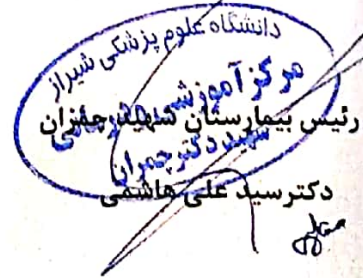 دانشگاه علوم پزشکی شیراز
مرکز آموزشی درمانی
شهید دکتر چمران
رئیس بیمارستان شهید چمران
دکتر سید علی هاشمی